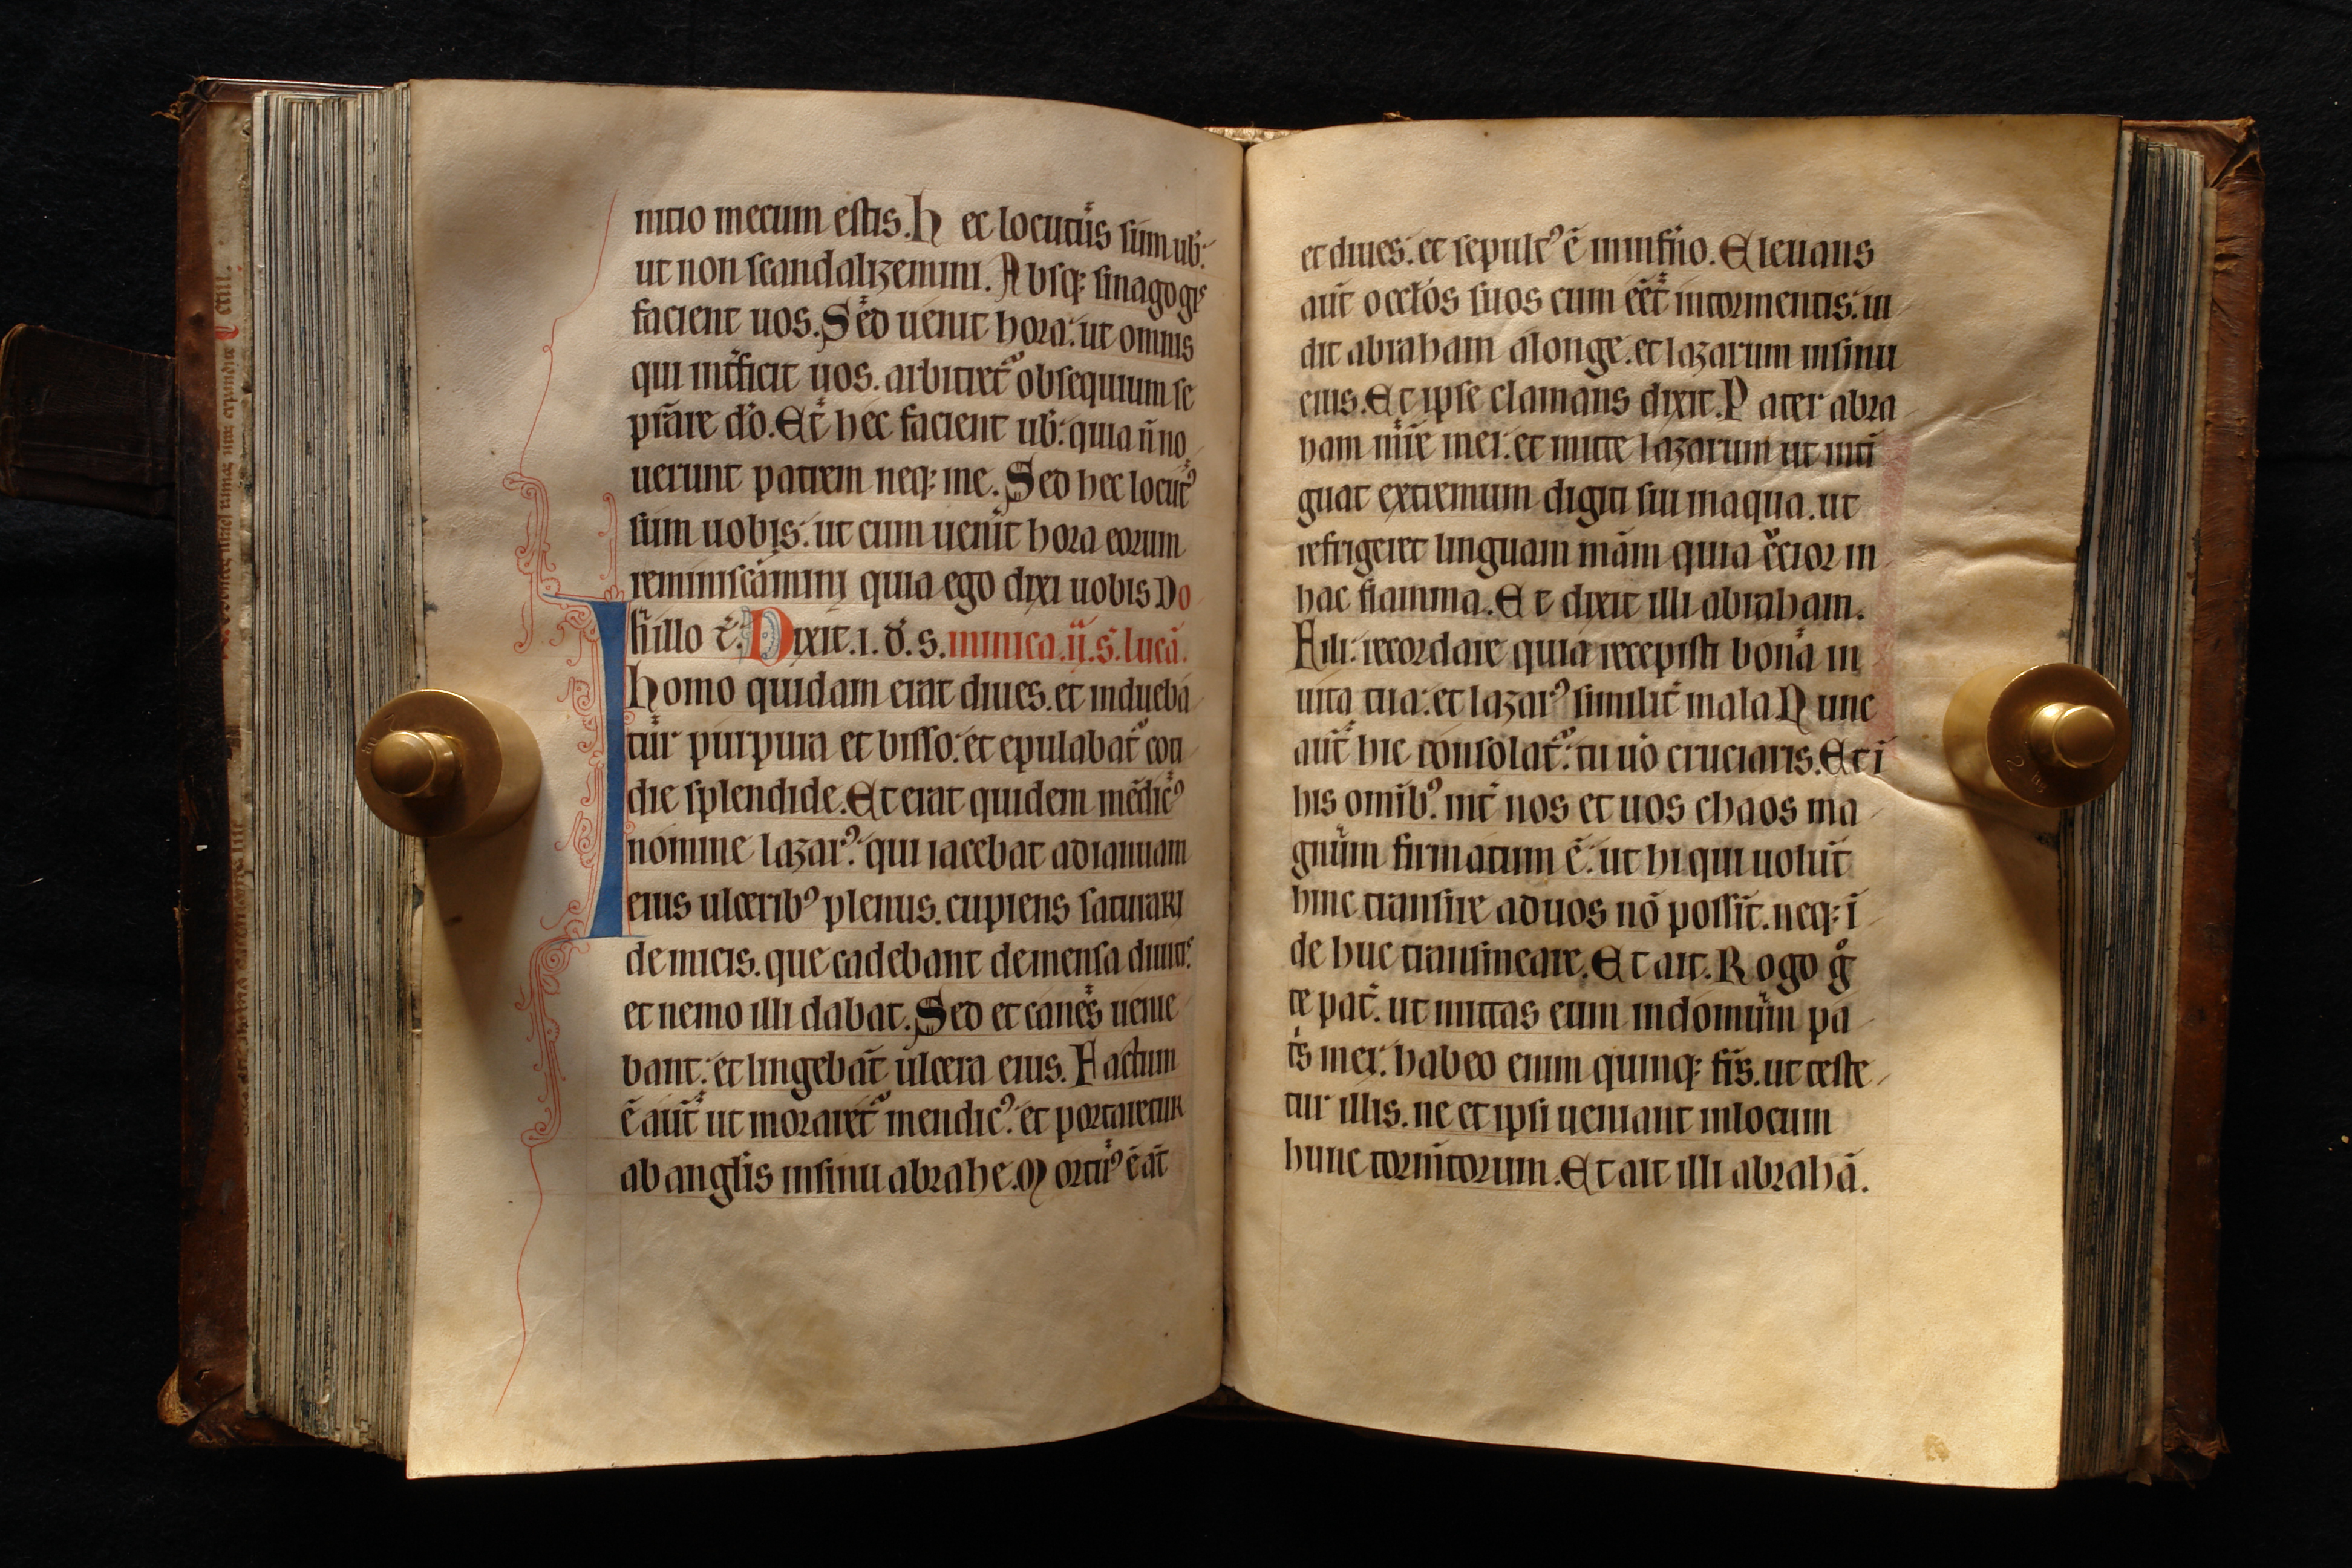 nitio mecum estis. Hec locutus sum ub̄:
ut non scandalizemini. Absq; sinagogis
facient uos. Sed uenit hora: ut omnis
qui int̄ficit uos. arbitret᷑ obsequium se
prāre do. Et hec facient ub̄: quia n̄ no
uerunt patrem neq; me. Sed hec locutꝰ
sum uobis: ut cum uenit hora eorum
reminiscamini quia ego dixi uobis Do
In illo t̄. Dixit .i. d. s. minica .ii. s. lucā.
homo quidam erat diues. et indueba
tur purpura et bisso: et epulabat᷑ coti
die splendide. Et erat quidem mēdicꝰ
nomine lazarꝰ: qui iacebat ad ianuam
eius ulceribꝰ plenus. cupiens saturari
de micis. que cadebant de mensa diuitis.
et nemo illi dabat. Sed et canes uenie
bant: et lingebāt ulcera eius. Factum
ē aut̄ ut moraret᷑ mendicꝰ: et portaretur
ab angl̄is in sinu abrahe. Mortuꝰ ē āt
et diues. et sepultꝰ ē in inf̄no. Eleuans
aut̄ oclōs suos cum eēt in tormentis: ui
dit abraham a longe. et lazarum in sinu
eius. Et ipse clamans dixit. Pater abra
ham mis̄re mei. et mitte lazarum ut inti
guat extremum digiti sui in aqua. ut
refrigeret linguam mām quia c̄cior in
hac flamma. Et dixit illi abraham.
Fili: recordare quia recepisti bona in
uita tua: et lazarꝰ similit̄ mala. Nunc
aut̄ hic consolat᷑: tu uo cruciaris. Et ī
his omibꝰ. int̄ nos et uos chaos ma
gnum firmatum ē: ut hi qui uolūt
hinc transire ad uos nō possīt. neq; ī
de huc transmeare. Et ait. Rogo g̊
te pat̄. ut mittas eum in domum pa
tis mei. habeo enim quinq; fr̄s. ut teste
tur illis. ne et ipsi ueniant in locum
hunc torm̄torum. Et ait illi abrahā.